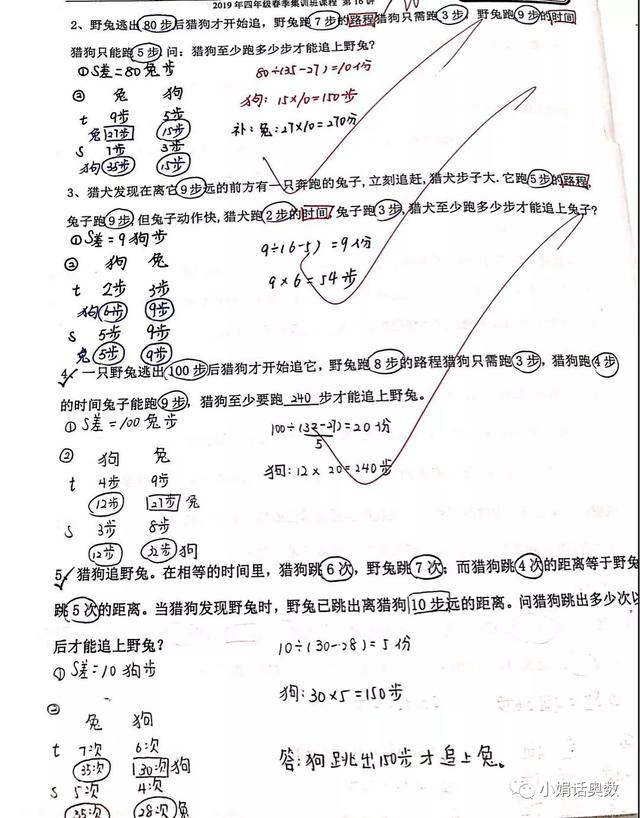 2019年四年级春季集训班课程 第16讲
2、野兔逃出80步后猎狗才开始追，野兔跑7步的路程猎狗只需跑3步，野兔跑9步的时间
猎狗只能跑5步.问：猎狗至少跑多少步才能追上野兔？
①S差=80兔步
80÷(35-27)=10份
② 兔 狗
狗：15×10=150步
t 9步 5步
补：兔：27×10=270份
兔 27步 15步
S 7步 3步
狗 35步 15步
3、猎犬发现在离它9步远的前方有一只奔跑的兔子,立刻追赶,猎犬步子大.它跑5步的路程,
兔子跑9步,但兔子动作快,猎犬跑2步的时间,兔子跑3步,猎犬至少跑多少步才能追上兔子?
①S差=9狗步
9÷(6-5)=9份
② 狗 兔
9×6=54步
t 2步 3步
狗 6步 9步
S 5步 9步
兔 5步 9步
4、一只野兔逃出100步后猎狗才开始追它，野兔跑8步的路程猎狗只需跑3步，猎狗跑4步
的时间兔子能跑9步，猎狗至少要跑 240 步才能追上野兔。
①S差=100兔步
100÷(32-27)=20份
5
② 狗 兔
狗:12×20=240步
t 4步 9步
12步 27步 兔
S 3步 8步
12步 32步 狗
5、猎狗追野兔。在相等的时间里，猎狗跳6次，野兔跳7次；而猎狗跳4次的距离等于野兔
跳5次的距离。当猎狗发现野兔时，野兔已跳出离猎狗10步远的距离。问猎狗跳出多少次以
后才能追上野兔?
10÷(30-28)=5份
①S差=10狗步
狗:30×5=150步
②
兔 狗
t 7次 6次
35次 30次 狗
答:狗跳出150步才追上兔。
S 5次 4次
35次 28次 兔
小娟话奥数